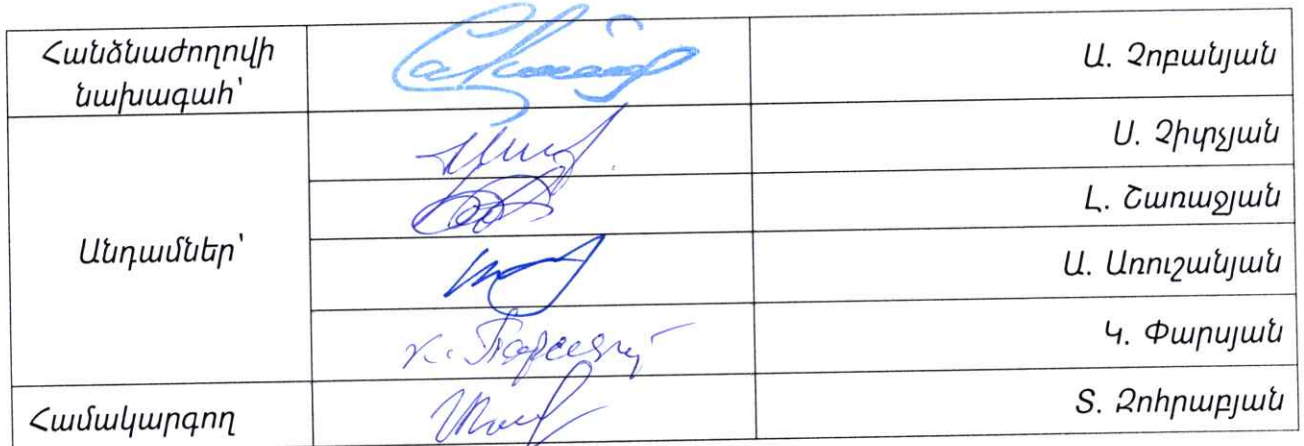 Հանձնաժողովի
նախագահ՝
Ա. Չոբանյան
Անդամներ՝
Ս. Չիտչյան
Լ. Շառաջյան
Ա. Առուշանյան
Կ. Փարսյան
Համակարգող
Տ. Զոհրաբյան